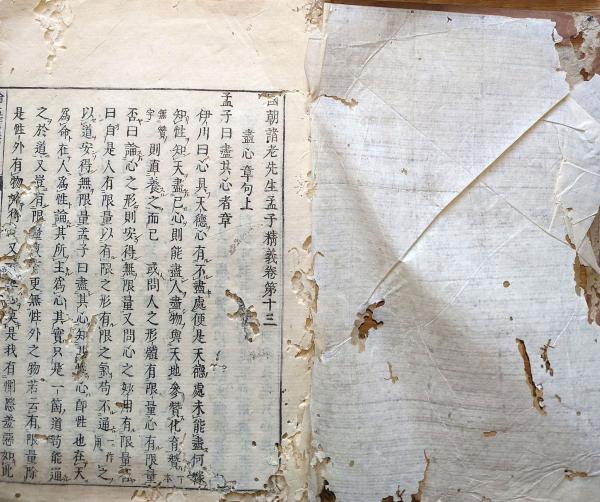 國朝諸老先生孟子精義卷第十三
盡心章句上
孟子曰盡其心者章
伊川曰心具天德心有不盡處便是天德處未能盡何緣
知性知天盡已心則能盡人盡物與天地參贊化育贊一本
無贊字則直養之而已 或問人之形體有限量心有限量
否曰論心之形則安得無限量又問心之妙用有限量否
曰自是人有限量以有限之形有限之氣苟不通之
以道安得無限量孟子曰盡其心知其性心即性也在天
爲命在人爲性論其所主爲心其實只是一箇道苟能通
之於道又豈有限量更無性外之物若云有限量除
是性外有物始得 又 是我有惻隱羞惡如此